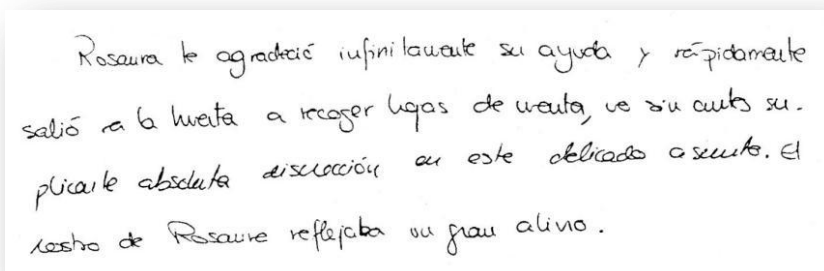 Rosaura le agradeció infinitamente su ayuda y rápidamente
salió a la huerta a recoger hojas de menta, no sin antes su-
plicarle absoluta discreción en este delicado asunto. El
rostro de Rosaura reflejaba un gran alivio.